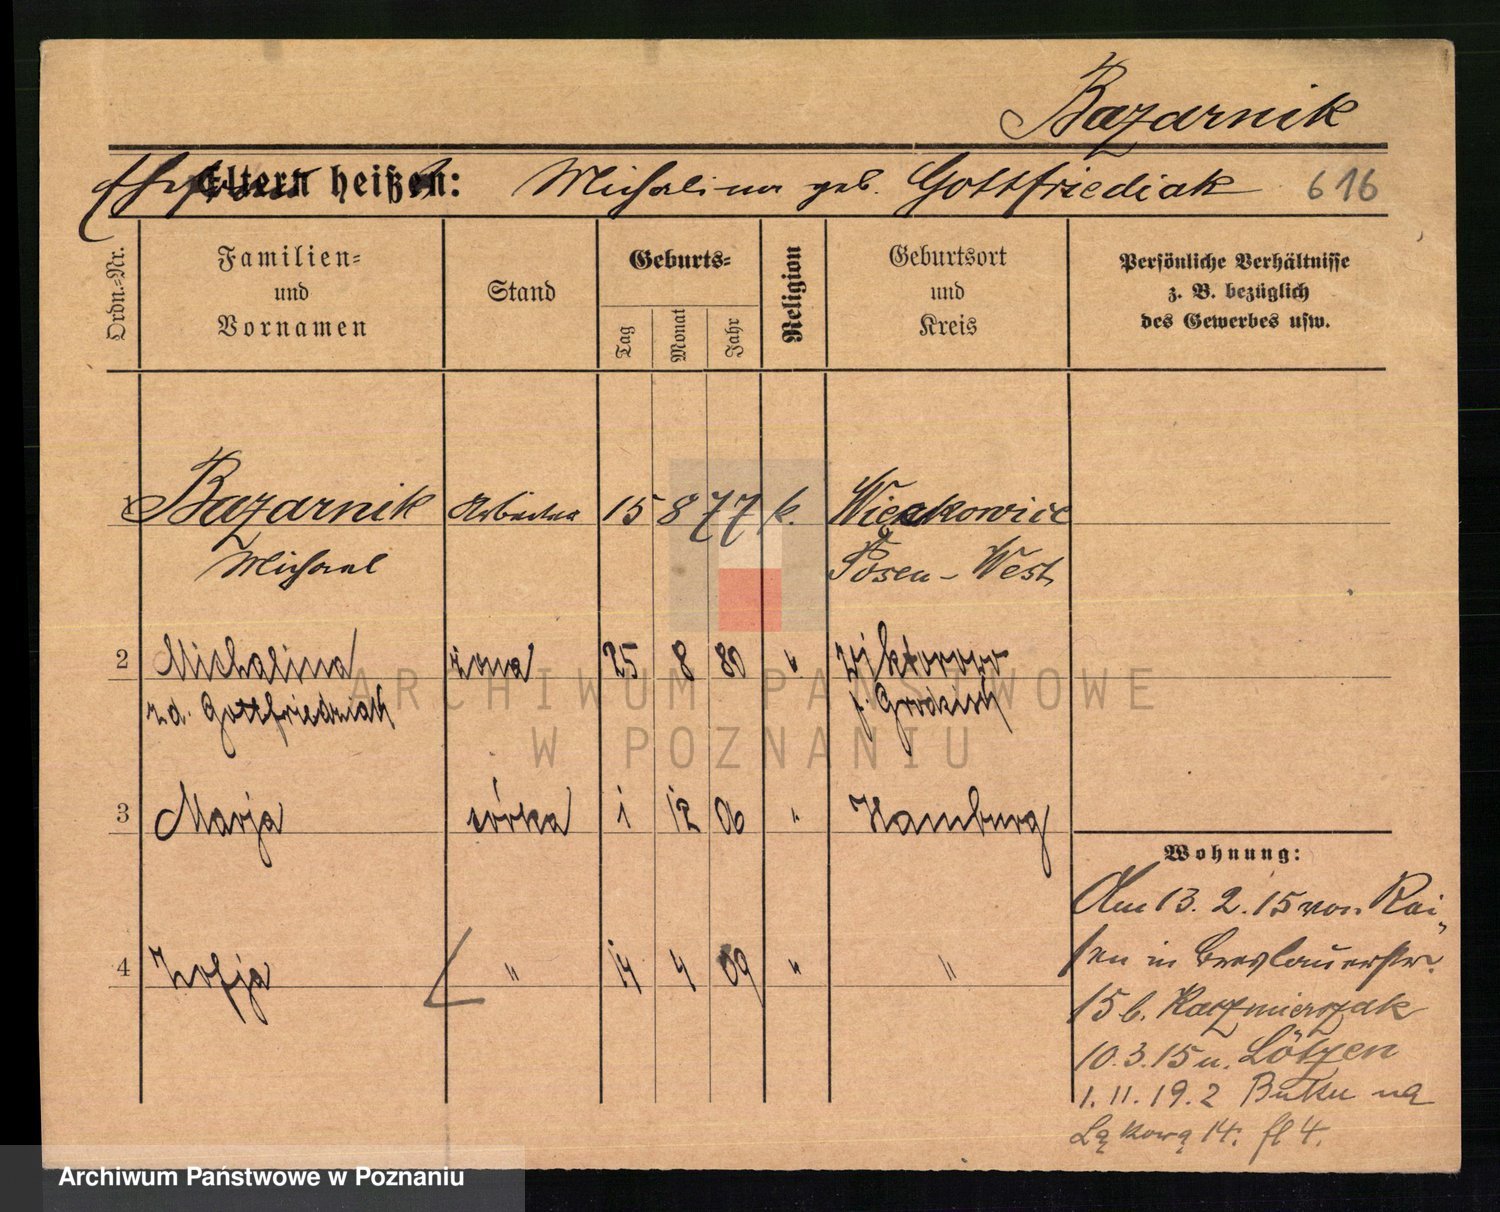 Bazarnik
Ehefrau Eltern heißen: Michalina geb. Gottfriediak 616
Ordn.-Nr.
Familien-
und
Vornamen
Stand
Geburts-
Tag
Monat
Jahr
Religion
Geburtsort
und
Kreis
Persönliche Verhältnisse
z. B. bezüglich
des Gewerbes usw.
1 Bazarnik Arbeiter 15 8 77 k. Więckowice
Michael Posen-West
2 Michalina żona 25 8 80 " Wiktorowo
z d. Gottfriedziak p. Grodzisk
3 Marja córka 1 12 06 " Hamburg
Wohnung:
Am 13. 2. 15 von Rei-
sen in Breslauerstr.
4 Zofja " 14 4 09 " "
15 b. Kaczmierczak
10. 3. 15 n. Lötzen
1. 11. 19. z Buku na
Łąkową 14.
ARCHIWUM PAŃSTWOWE
W POZNANIU
Archiwum Państwowe w Poznaniu